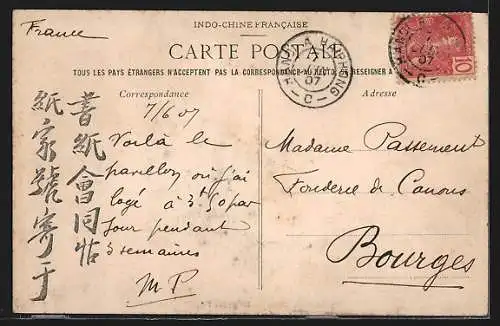 INDO-CHINE FRANÇAISE
France
CARTE POSTALE
TOUS LES PAYS ÉTRANGERS N'ACCEPTENT PAS LA CORRESPONDANCE AU RECTO SE RENSEIGNER A
HANOI A HAIPHONG
07
C
10
Correspondance
Adresse
7/6 07
Voilà le
pavillon où j'ai
logé à 3f50 par
jour pendant
3 semaines
M P
Madame Passement
Fonderie de Canons
Bourges
書紙會同帖
紙家號寄于